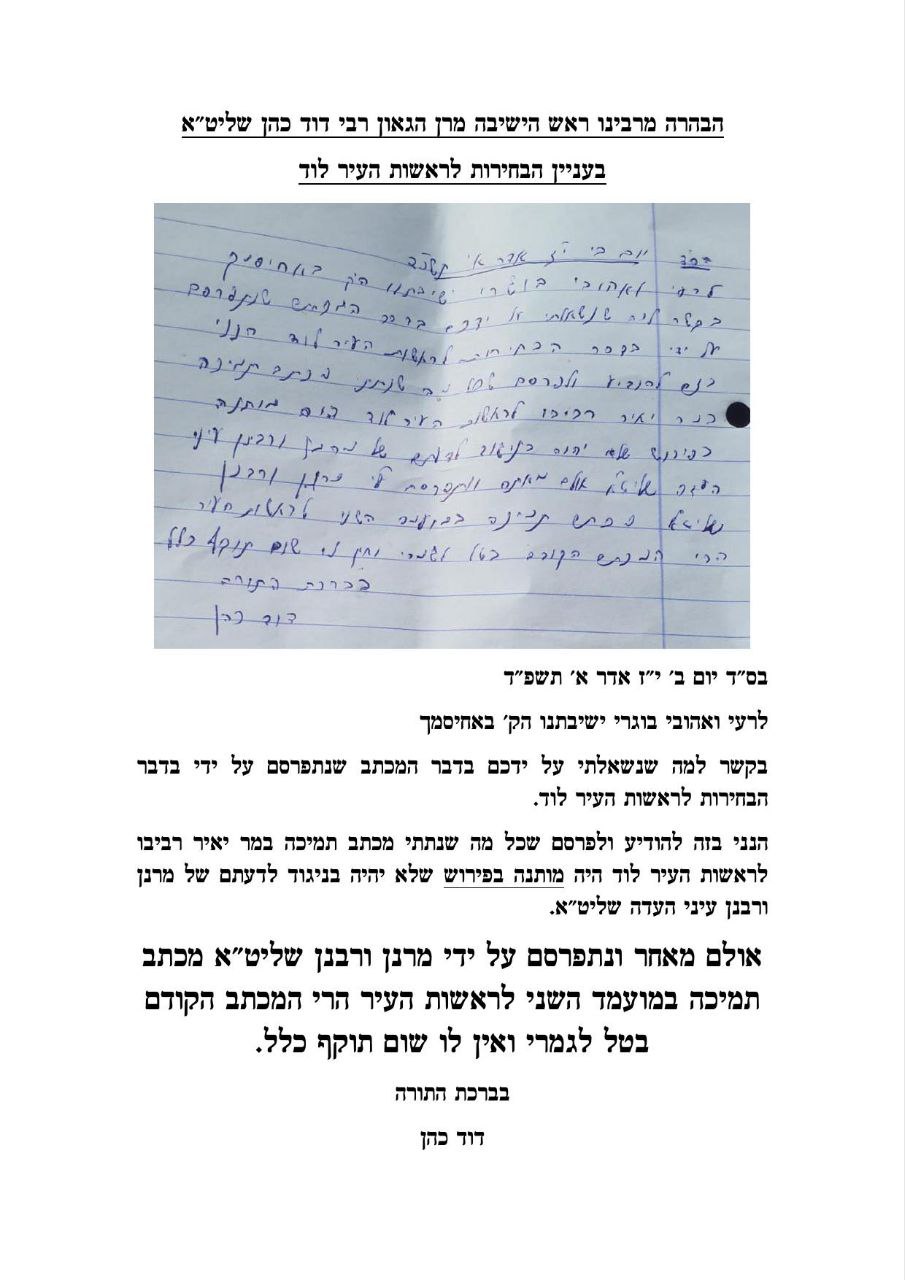 הבהרה מרבינו ראש הישיבה מרן הגאון רבי דוד כהן שליט"א
בעניין הבחירות לראשות העיר לוד
בס"ד יום ב' י"ז אדר א' תשפ"ד
לרעי ואהובי בוגרי ישיבתנו הק' באחיסמך
בקשר למה שנשאלתי על ידכם בדבר המכתב שנתפרסם
על ידי בדבר הבחירות לראשות העיר לוד הנני
בזה להודיע ולפרסם שכל מה שנתתי מכתב תמיכה
במר יאיר רביבו לראשות העיר לוד היה מותנה
בפירוש שלא יהיה בניגוד לדעתם של מרנן ורבנן עיני
העדה שליט"א אולם מאחר ונתפרסם ע"י מרנן ורבנן
שליט"א מכתב תמיכה במועמד השני לראשות העיר
הרי המכתב הקודם בטל לגמרי ואין לו שום תוקף כלל
בברכת התורה
דוד כהן
בס"ד יום ב' י"ז אדר א' תשפ"ד
לרעי ואהובי בוגרי ישיבתנו הק' באחיסמך
בקשר למה שנשאלתי על ידכם בדבר המכתב שנתפרסם על ידי בדבר
הבחירות לראשות העיר לוד.
הנני בזה להודיע ולפרסם שכל מה שנתתי מכתב תמיכה במר יאיר רביבו
לראשות העיר לוד היה מותנה בפירוש שלא יהיה בניגוד לדעתם של מרנן
ורבנן עיני העדה שליט"א.
אולם מאחר ונתפרסם על ידי מרנן ורבנן שליט"א מכתב
תמיכה במועמד השני לראשות העיר הרי המכתב הקודם
בטל לגמרי ואין לו שום תוקף כלל.
בברכת התורה
דוד כהן